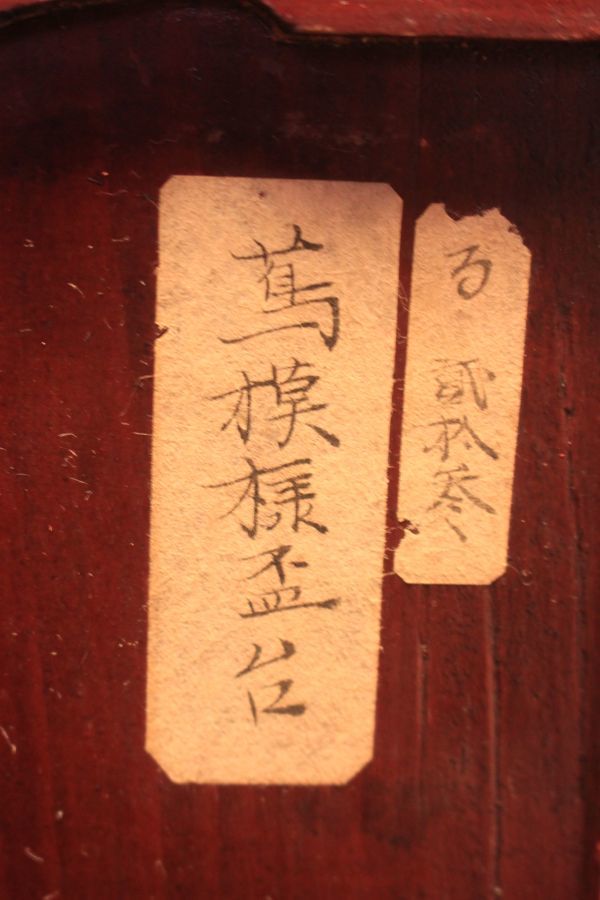 る 貳拾参
蔦模様盃台